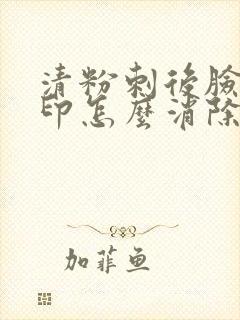 清粉刺後臉
印怎麼消除
加菲鱼